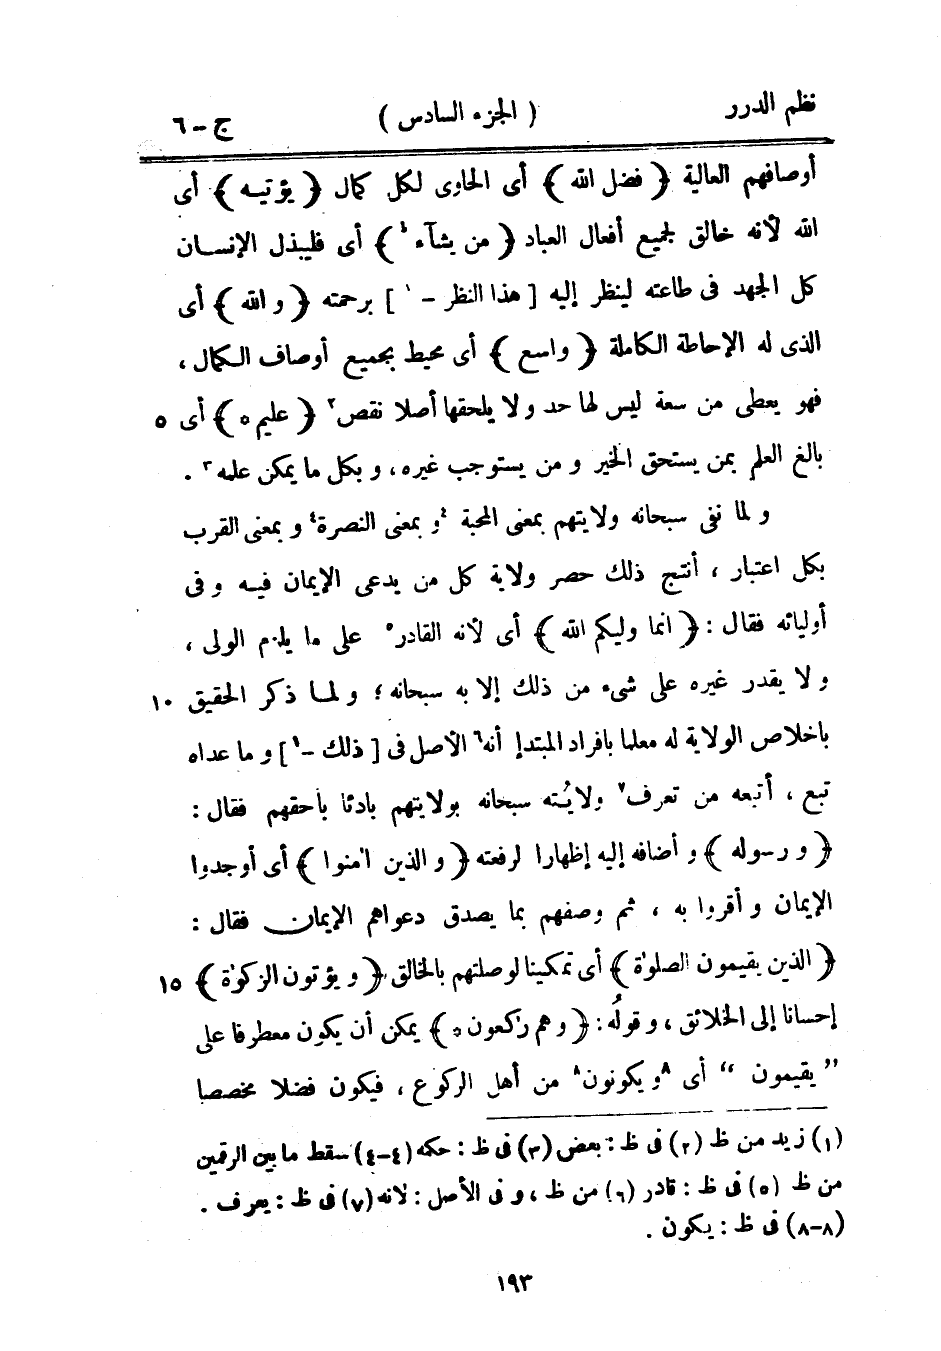 نظم الدرر ( الجزء السادس ) ج - ٦
أوصافهم العالية ﴿ فضل الله ﴾ أى الحاوى لكل كمال ﴿ يؤتيه ﴾ أى
الله لأنه خالق لجميع أفعال العباد ﴿ من يشآء ط ﴾ أى فليبذل الإنسان
كل الجهد فى طاعته لينظر إليه [ هذا النظر - ١ ] برحمته ﴿ و الله ﴾ أى
الذى له الإحاطة الكاملة ﴿ واسع ﴾ أى محيط بجميع أوصاف الكمال ،
فهو يعطى من سعة ليس لها حد و لا يلحقها أصلا نقص٢ ﴿ عليم ه ﴾ أى ٥
بالغ العلم بمن يستحق الخير و من يستوجب غيره ، و بكل ما يمكن علمه٣ .
و لما نفى سبحانه ولايتهم بمعنى المحبة ٤و بمعنى النصرة٤ و بمعنى القرب
بكل اعتبار ، أنتج ذلك حصر ولاية كل من يدعى الإيمان فيه و فى
أوليائه فقال : ﴿ انما وليكم الله ﴾ أى لأنه القادر٥ على ما يلزم الولى ،
و لا يقدر غيره على شىء من ذلك إلا به سبحانه ؛ و لما ذكر الحقيق ١٠
باخلاص الولاية له معلما بافراد المبتدإ أنه٦ الأصل فى [ ذلك - ١ ] و ما عداه
تبع ، أتبعه من تعرف٧ ولايته سبحانه بولايتهم بادئا بأحقهم فقال :
﴿ و رسوله ﴾ و أضافه إليه إظهارا لرفعته ﴿ و الذين اٰمنوا ﴾ أى أوجدوا
الإيمان و أقروا به ، ثم وصفهم بما يصدق دعواهم الإيمان فقال :
﴿ الذين يقيمون الصلوٰة ﴾ أى تمكينا لوصلتهم بالخالق ﴿ و يؤتون الزكوٰة ﴾ ١٥
إحسانا إلى الخلائق ، و قولُه : ﴿ و هم رٰكعون ه ﴾ يمكن أن يكون معطوفا على
” يقيمون “ أى ٨و يكونون٨ من أهل الركوع ، فيكون فضلا مخصصا
(١) زيد من ظ (٢) فى ظ : بعض (٣) فى ظ : حكه (٤-٤) سقط ما بين الرقمين
من ظ (٥) فى ظ : قادر (٦) من ظ ، و فى الأصل : لانه (٧) فى ظ : يعرف .
(٨-٨) فى ظ : يكون .
١٩٣